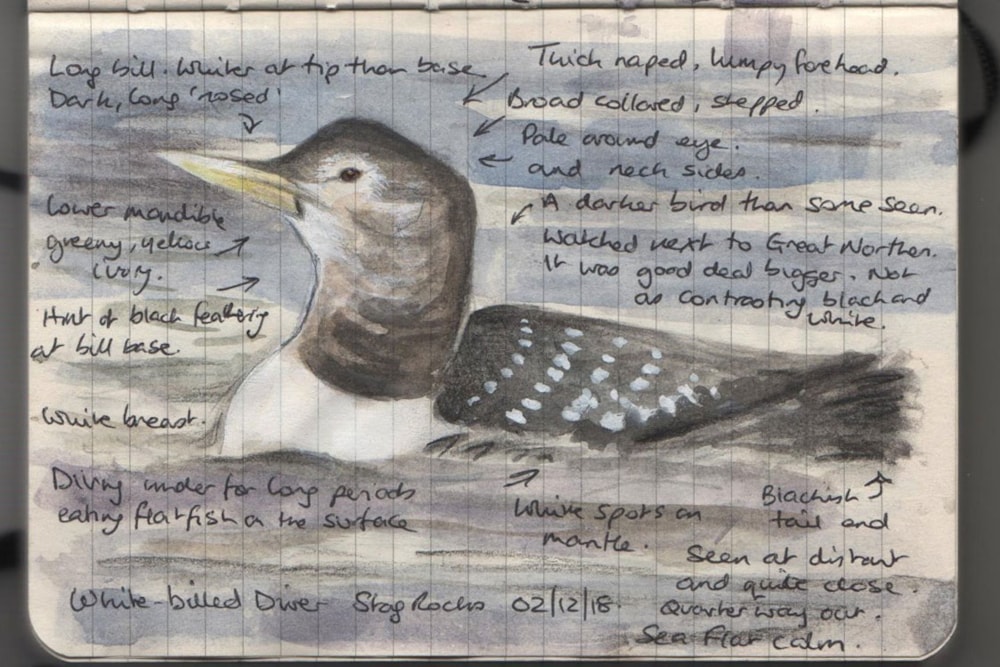 Long bill. Whiter at tip than base.
Dark, long 'nosed'
Thick naped, lumpy forehead.
Broad collared, stepped.
Pale around eye.
and neck sides.
A darker bird than some seen.
Watched next to Great Northern.
It was good deal bigger. Not
as contrasting black and
white.
Lower mandible
greeny, yellow
ivory.
Hint of black feathering
at bill base.
White breast.
Diving under for long periods
eating flatfish on the surface
White spots on
mantle.
Blackish
tail end
Seen at distant
and quite close.
Quarter way out.
Sea flat calm.
White-billed Diver Stag Rocks 02/12/18.